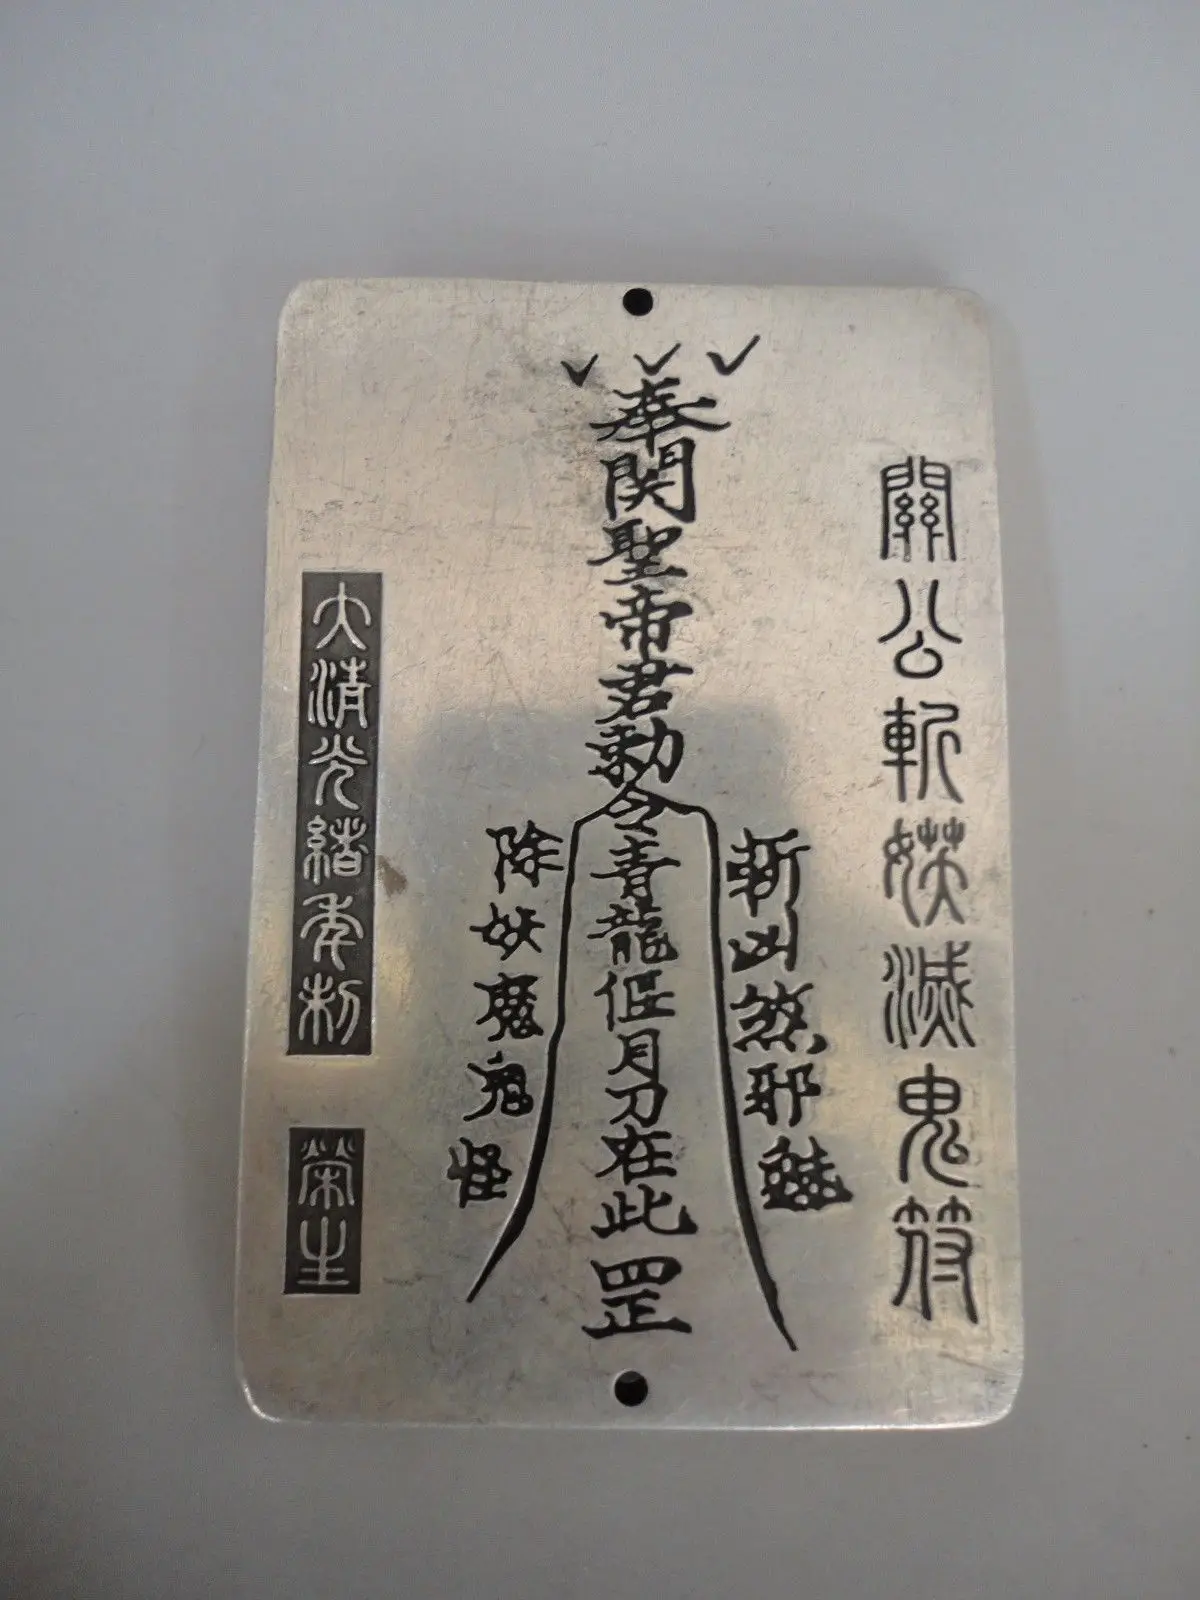 關公斬媖滅鬼符
奉関聖帝君勅令青龍偃月刀在此罡
斬凶煞邪魅
除妖魔鬼怪
大清光緒年制
榮生